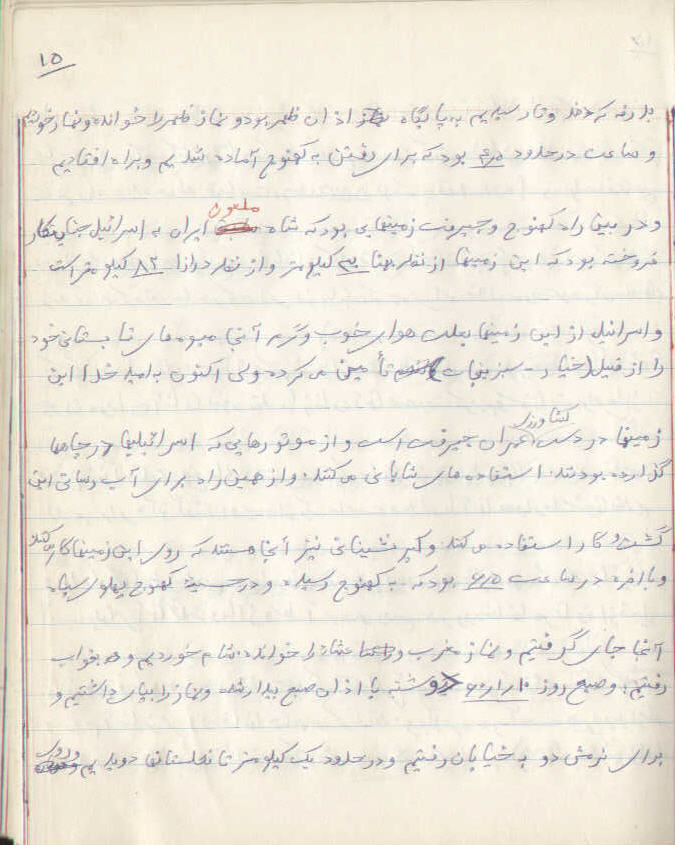 ۱۵
که رسیدیم به پایگاه اذان ظهر بود و نماز ظهر را خوانده و نماز خواندیم
و ساعت در حدود بود که برای رفتن به کهنوج آماده شدیم و براه افتادیم
ملعون
و در بین راه کهنوج و جیرفت زمینهایی بود که شاه ایران به اسرائیل جنایتکار
فروخته بود که این زمینها از نظر پهنا ۳۰ کیلومتر و از نظر درازا ۸۲ کیلومتر است
و اسرائیل از این زمینها بعلت هوای خوب و گرم آنجا میوه های تابستانی خود
را از قبیل (خیار - سبزیجات تأمین می کرده ولی اکنون به امید خدا این
کشاورزی
زمینها در دست جیرفت است و از موتورهایی که اسرائیلیها در چاهها
گزارده بودند، استفاده های شایانی می کنند، و از همین راه برای آب رسانی این
کشت و کار استفاده می کند و کپر نشینانی نیز آنجا هستند که روی این زمینها کار می کنند
و بالاخره در ساعت بود که به کهنوج رسیده و در حسینیه کهنوج پهلوی سپاه
آنجا جای گرفتیم و نماز مغرب و عشاء را خوانده، شام خوردیم و بخواب
رفتیم، و صبح روز با اذان صبح بیدار شده و نماز را بپای داشتیم و
برای نرمش دو به خیابان رفتیم و در حدود یک کیلومتر تا نخلستانها دویدیم